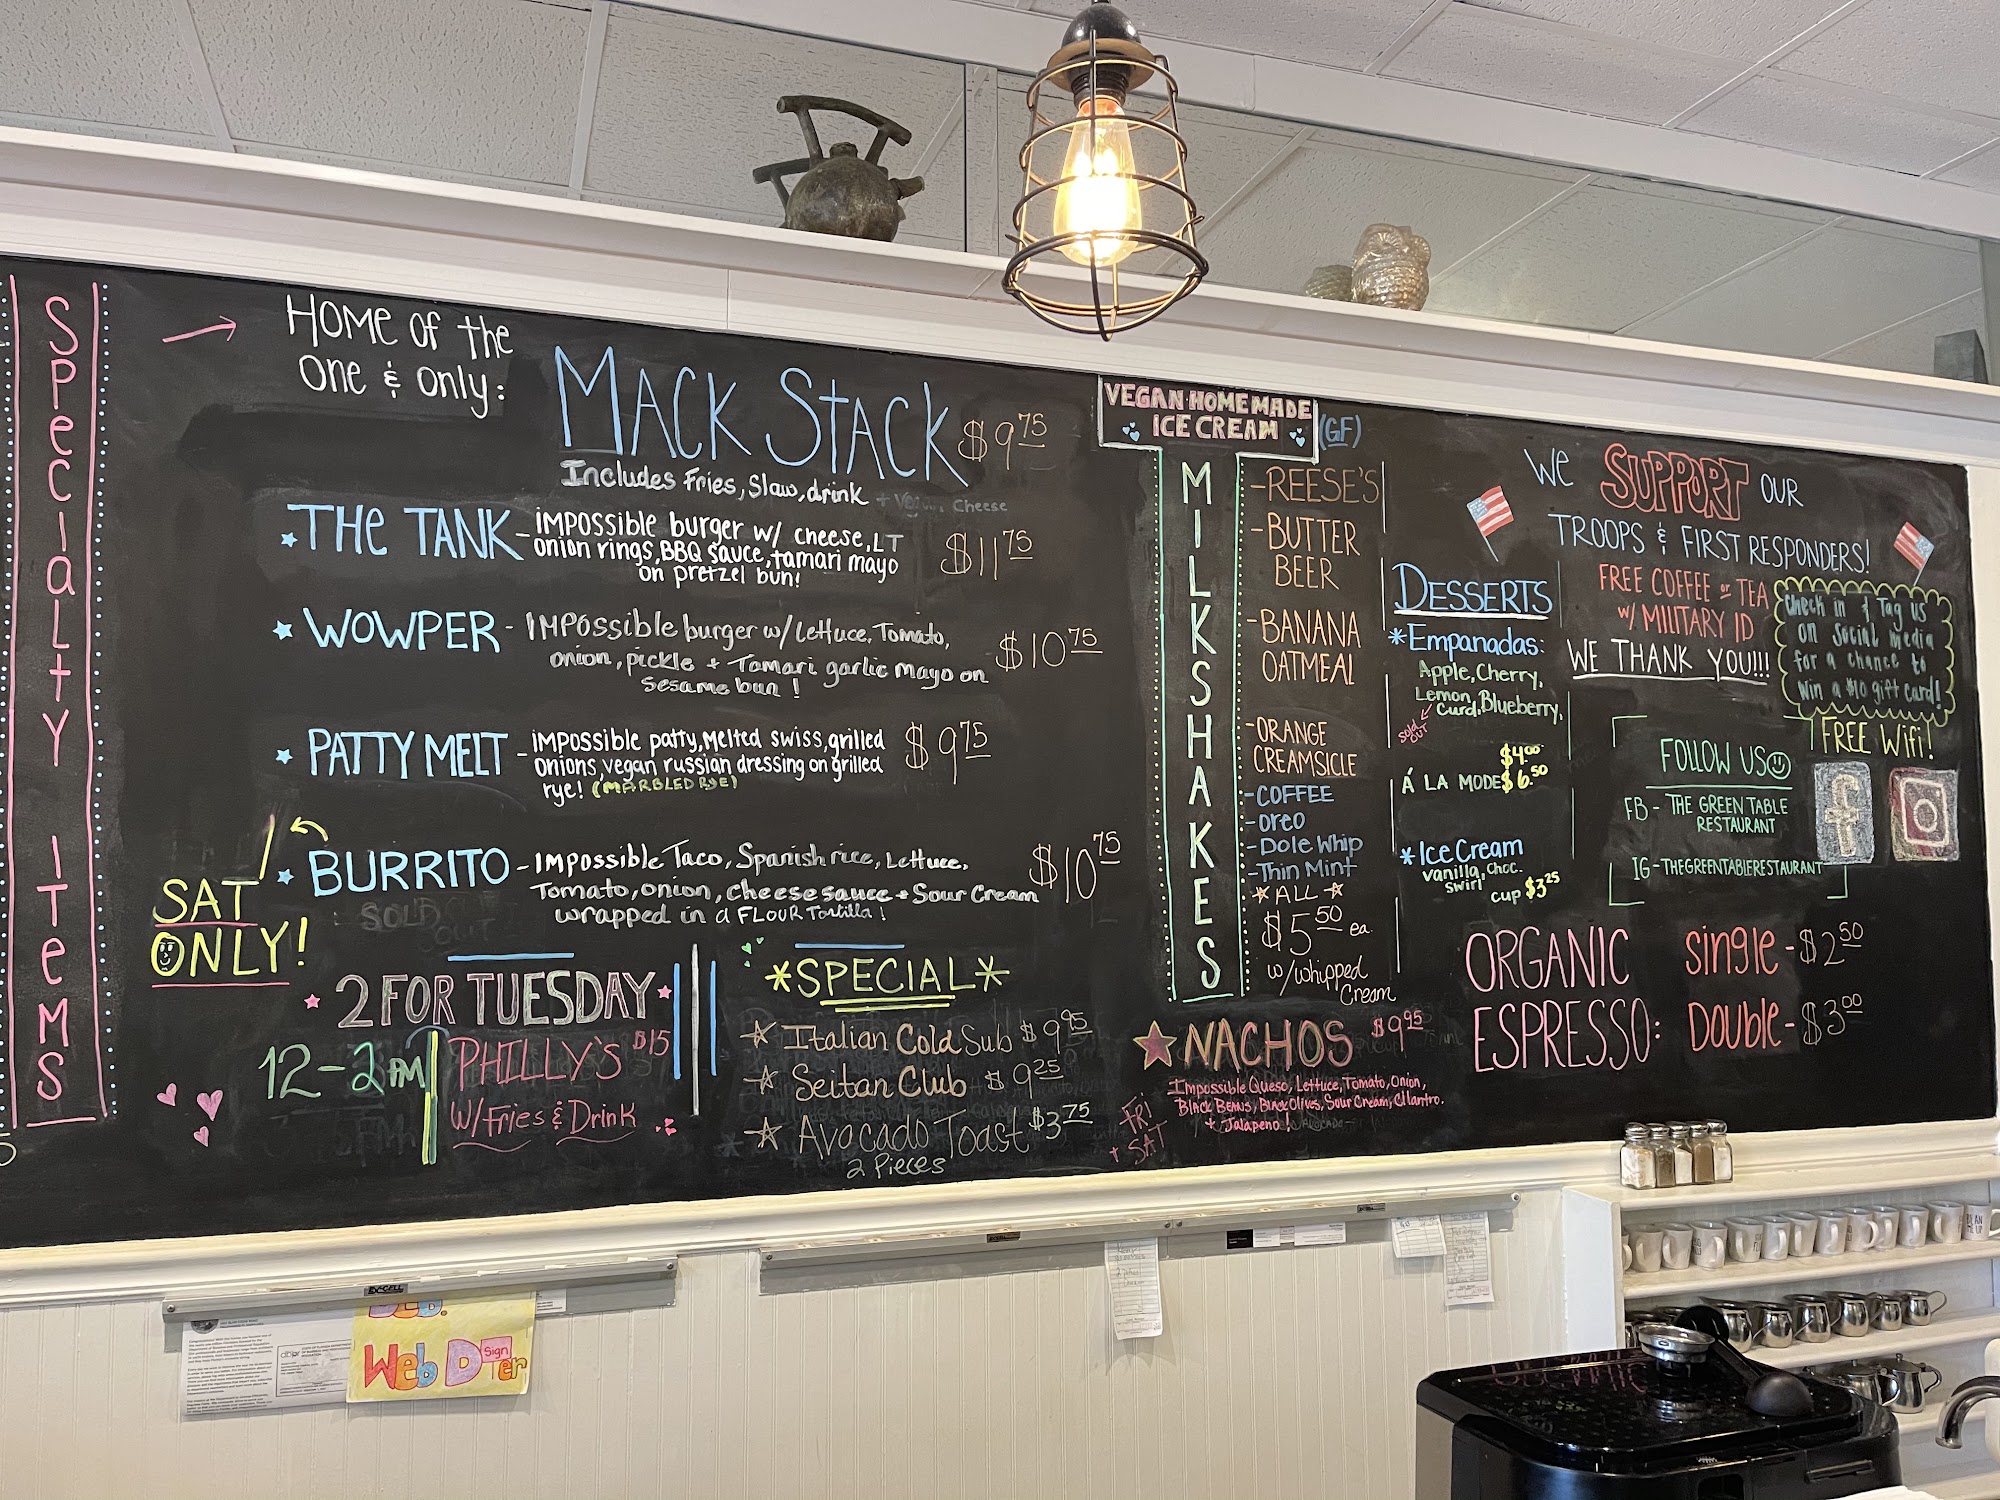 SPecIalty ITeMS
HOME OF the
One & Only:
MACK STACK $9.75
Includes Fries, Slaw, drink + Vegan Cheese
THe TANK - IMPOSSIBLE burger w/ cheese, LT
onion rings, BBQ sauce, tamari mayo
on pretzel bun!
$11.75
WOWPER - IMPOSSIBLE burger w/ Lettuce, Tomato,
onion, pickle + Tamari garlic mayo on
Sesame bun!
$10.75
PATTY MELT - IMPOSSIBLE patty, Melted swiss, grilled
onions, vegan russian dressing on grilled
rye! (MARBLED RYE)
$9.75
SAT
ONLY!
BURRITO - IMPOSSIBLE Taco, Spanish rice, Lettuce,
Tomato, onion, cheese sauce + Sour Cream
wrapped in a FLOUR Tortilla!
$10.75
SOLD
OUT
2 FOR TUESDAY
12-2 PM
PHILLY'S $15
W/ Fries & Drink
*SPECIAL*
Italian Cold Sub $9.95
Seitan Club $9.25
Avocado Toast $3.75
2 Pieces
VEGAN HOMEMADE
ICE CREAM
(GF)
MILKSHAKES
- REESE'S
- BUTTER
BEER
- BANANA
OATMEAL
- ORANGE
CREAMSICLE
- COFFEE
- Oreo
- Dole Whip
- Thin Mint
ALL
$5.50 ea.
w/ whipped
Cream
NACHOS $9.95
Impossible Queso, Lettuce, Tomato, Onion,
Black Beans, Black Olives, Sour Cream, Cilantro.
+ Jalapeno!
FRI
+ SAT
DESSERTS
*Empanadas:
Apple, Cherry,
Lemon
Curd, Blueberry,
SOLD
OUT
$4.00
Á LA MODE $6.50
*Ice Cream
vanilla, choc.
swirl
cup $3.25
We SUPPORT OUR
TROOPS & FIRST RESPONDERS!
FREE COFFEE or TEA
W/ MILITARY ID
WE THANK YOU!!!
Check in & Tag us
on Social media
for a chance to
win a $10 gift card!
FREE Wifi!
FOLLOW US
FB - THE GREEN TABLE
RESTAURANT
IG - THEGREENTABLERESTAURANT
f
ORGANIC
ESPRESSO:
Single - $2.50
Double - $3.00
EXCELL
Web Design er